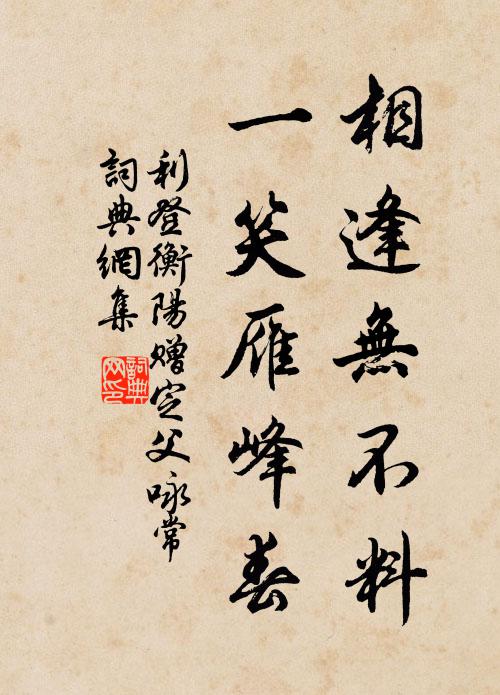 相逢無不料
一笑雁峰春
利登衡陽贈定父咏常
詞典網集
詞典网印